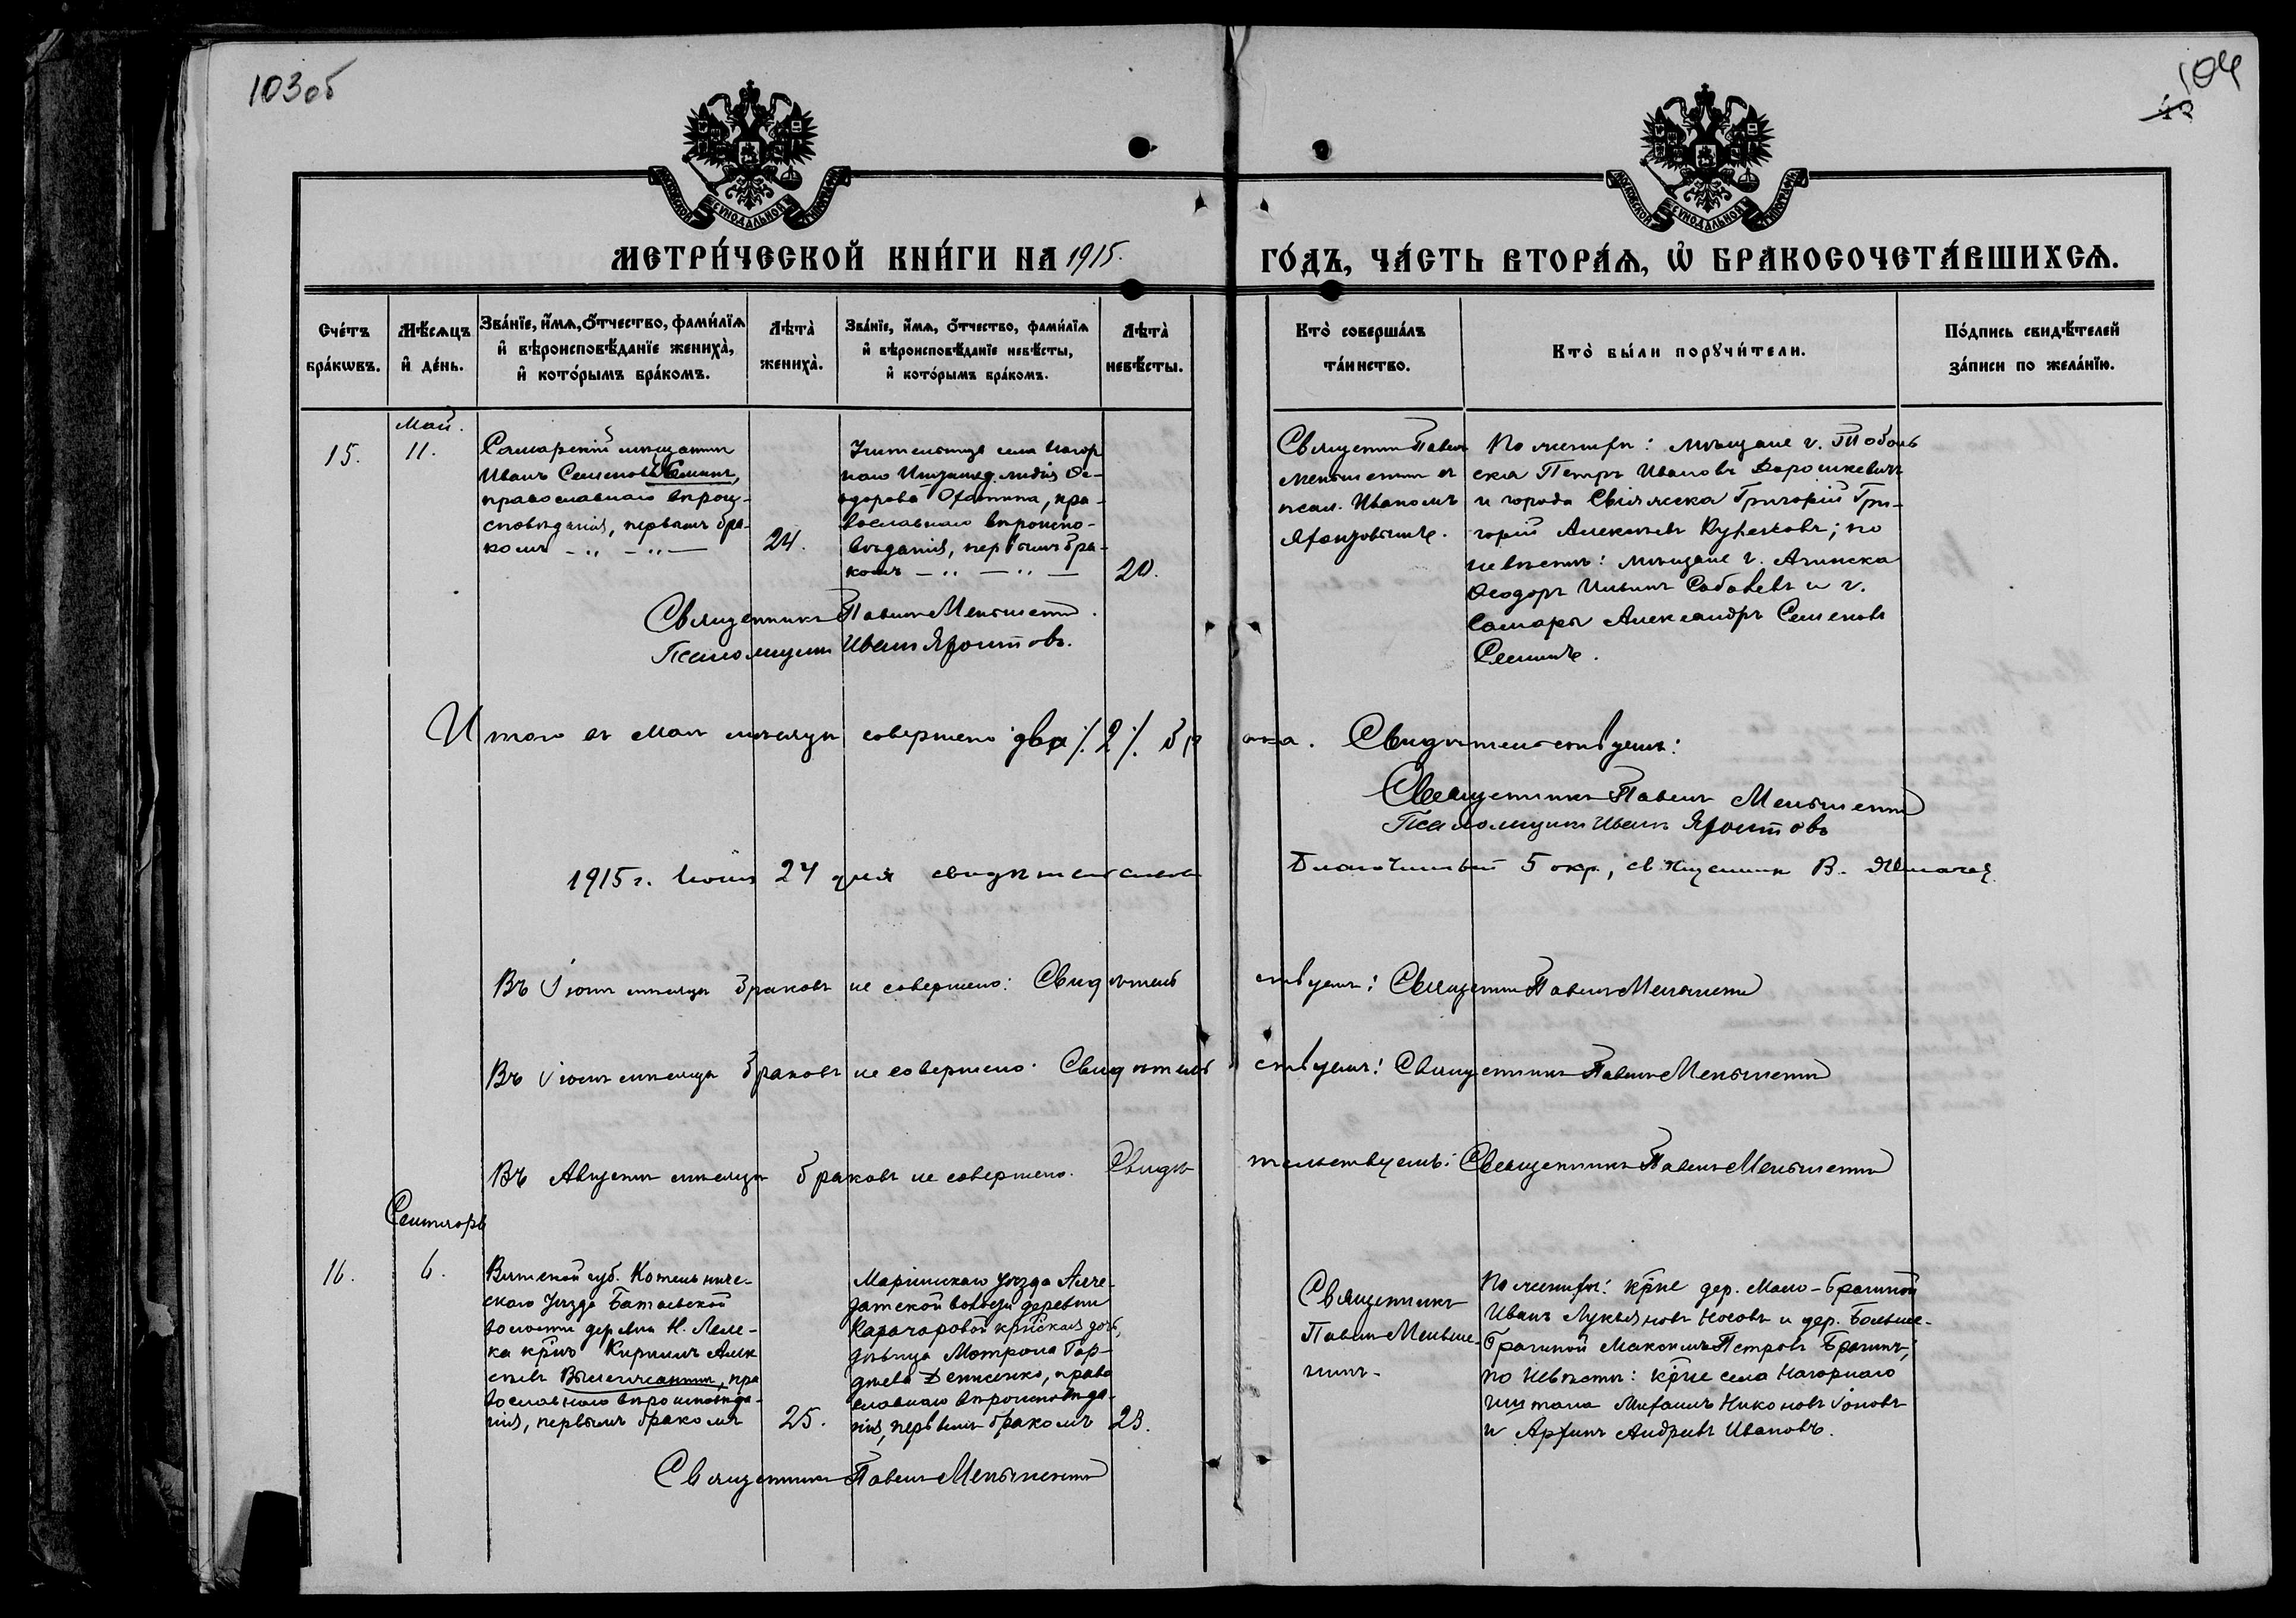 103об
104
МОСКОВСКОЙ СѴНОДАЛЬНОЙ ТИПОГРАФІИ
МОСКОВСКОЙ СѴНОДАЛЬНОЙ ТИПОГРАФІИ
МЕТРИ́ЧЕСКОЙ КНИ́ГИ НА 1915.
ГО́ДЪ, ЧА́СТЬ ВТОРА́Ѧ, Ѡ҆ БРАКОСОЧЕТА́ВШИХСѦ.
Сче́тъ бра́кѡвъ.
Мѣ́сѧцъ и҆ де́нь.
Зва́нїе, и҆́мѧ, ѻ҆́тчество, фами́лїѧ и҆ вѣроисповѣ́данїе жениха̀, и҆ кото́рымъ бра́комъ.
Лѣта̀ жениха̀.
Зва́нїе, и҆́мѧ, ѻ҆́тчество, фами́лїѧ и҆ вѣроисповѣ́данїе невѣ́сты, и҆ кото́рымъ бра́комъ.
Лѣта̀ невѣ́сты.
Кто̀ соверша́лъ та́инство.
Кто̀ бы́ли порꙋчи́тели.
По́дпись свидѣ́телей за́писи по жела́нїю.
Май.
15.
11.
Самарскій мѣщанинъ
Иванъ Семеновъ Семинъ,
православнаго вѣрои-
сповѣданія, первымъ бра-
комъ
24.
Учительница села Нагор
наго Лидія Ѳе-
одорова, пра-
вославнаго вѣроиспо-
вѣданія, первымъ бра-
комъ
20.
Священникъ Павелъ
Меньшенинъ съ
псал. Иваномъ
По женихѣ: мѣщане г. Тоболь
ска Петръ Ивановъ Дорошкевичъ
и города Свіяжска Григорій Гри-
горій Алексѣевъ; по
невѣстѣ: мѣщане г. Ачинска
Ѳеодоръ Ильинъ и г.
Самары Александръ Семеновъ
Семинъ.
Священникъ Павелъ Меньшенинъ.
Псаломщикъ Иванъ
Итого въ маѣ мѣсяцѣ совершено два ⁒ 2 ⁒ брака. Свидѣтельствуемъ:
Священникъ Павелъ Меньшенинъ
Псаломщикъ Иванъ
1915 г. Іюня 24 дня свидѣтельствовалъ Благочинный 5 окр., священникъ В.
Въ Іюнѣ мѣсяцѣ браковъ не совершено: Свидѣтельствуемъ: Священникъ Павелъ Меньшенинъ
Въ іюлѣ мѣсяцѣ браковъ не совершено. Свидѣтельствуемъ: Священникъ Павелъ Меньшенинъ
Въ Августѣ мѣсяцѣ браковъ не совершено. Свидѣтельствуемъ: Священникъ Павелъ Меньшенинъ
Сентябрь
16.
6.
Вятской губ. Котельниче-
скаго уѣзда Батаевской
волости деревни Н. Леле-
ка крнъ Кириллъ Алек
сѣевъ, пра
вославнаго вѣроисповѣда-
нія, первымъ бракомъ
25.
Маріинскаго уѣзда Алче-
датской волости деревни
Карачаровой крнская дочь,
дѣвица Матрона Гор-
дѣева Денисенко, право
славнаго вѣроисповѣда-
нія, первымъ бракомъ
23.
Священникъ
Павелъ Меньше-
нинъ.
По женихѣ: крне дер. Мало-Брагиной
Иванъ Лукьяновъ Носовъ и дер. Больше-
Брагиной Максимъ Петровъ Брагинъ;
по невѣстѣ: крне села Нагорнаго
Михаилъ Никоновъ Іоновъ
и Андреевъ Ивановъ.
Священникъ Павелъ Меньшенинъ